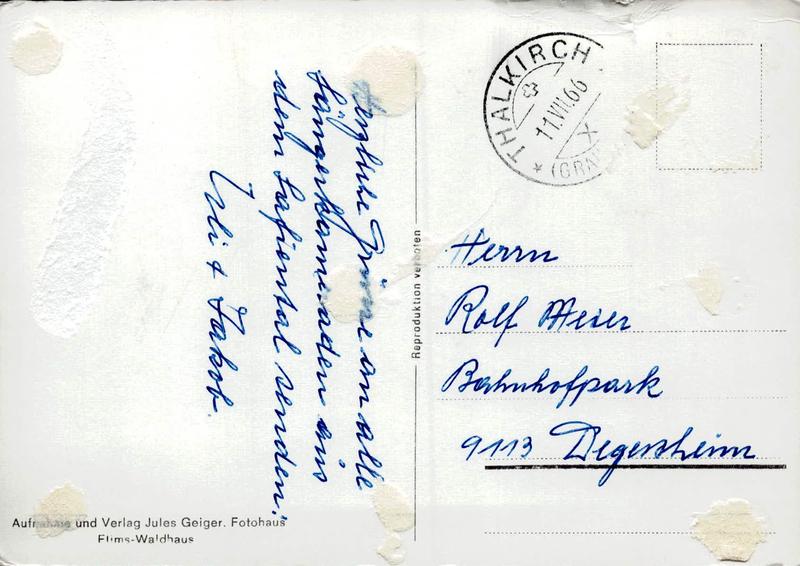 Herzliche Grüsse an alle
Sängerkameraden aus
dem Safiental senden:
Ueli + Jakob.
Aufnahme und Verlag Jules Geiger. Fotohaus
Flims-Waldhaus
Reproduktion verboten
THALKIRCH
11.VII.66
X
(GRN
Herrn
Rolf Meier
Bahnhofpark
9113 Degersheim